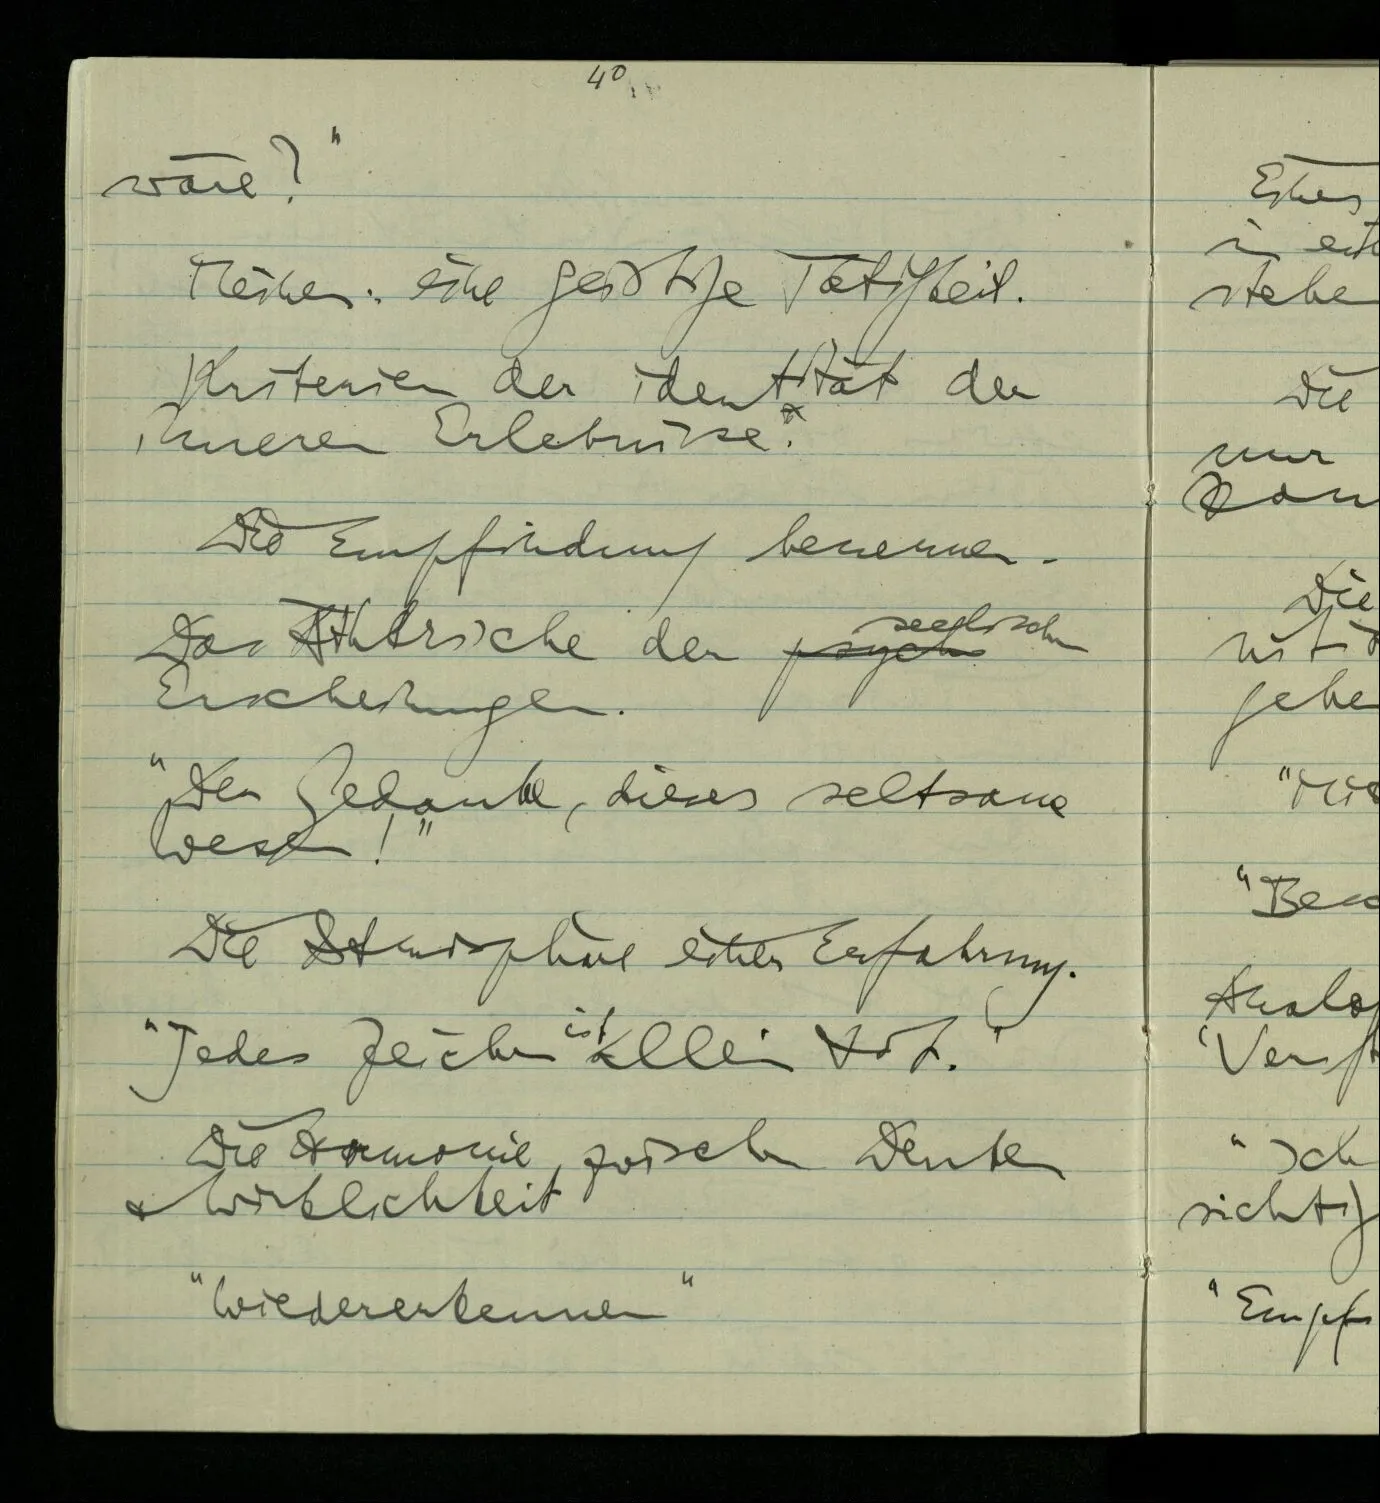 40
wäre?"
Meinen: eine geistige Tätigkeit.
Kriterien der identität der
inneren Erlebnisse.
Die Empfindung benennen.
Das Ätherische der psych seelischen
Erscheinungen.
"Der Gedanke, dieses seltsame
Wesen!"
Die Atmosphäre einer Erfahrung.
"Jedes Zeichen ist allein tot."
Die Harmonie zwischen Denken
& Wirklichkeit
"Wiedererkennen"
Eines
in
stehe
Die
nur
kan
Die
nist
gebe
Analo
"Ich
richtig
"Empf